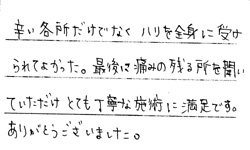 辛い各所だけでなく ハリを全身に受け
られてよかった。最後に痛みの残る所を聞い
ていただけ とても丁寧な施術に満足です。
ありがとうございました。